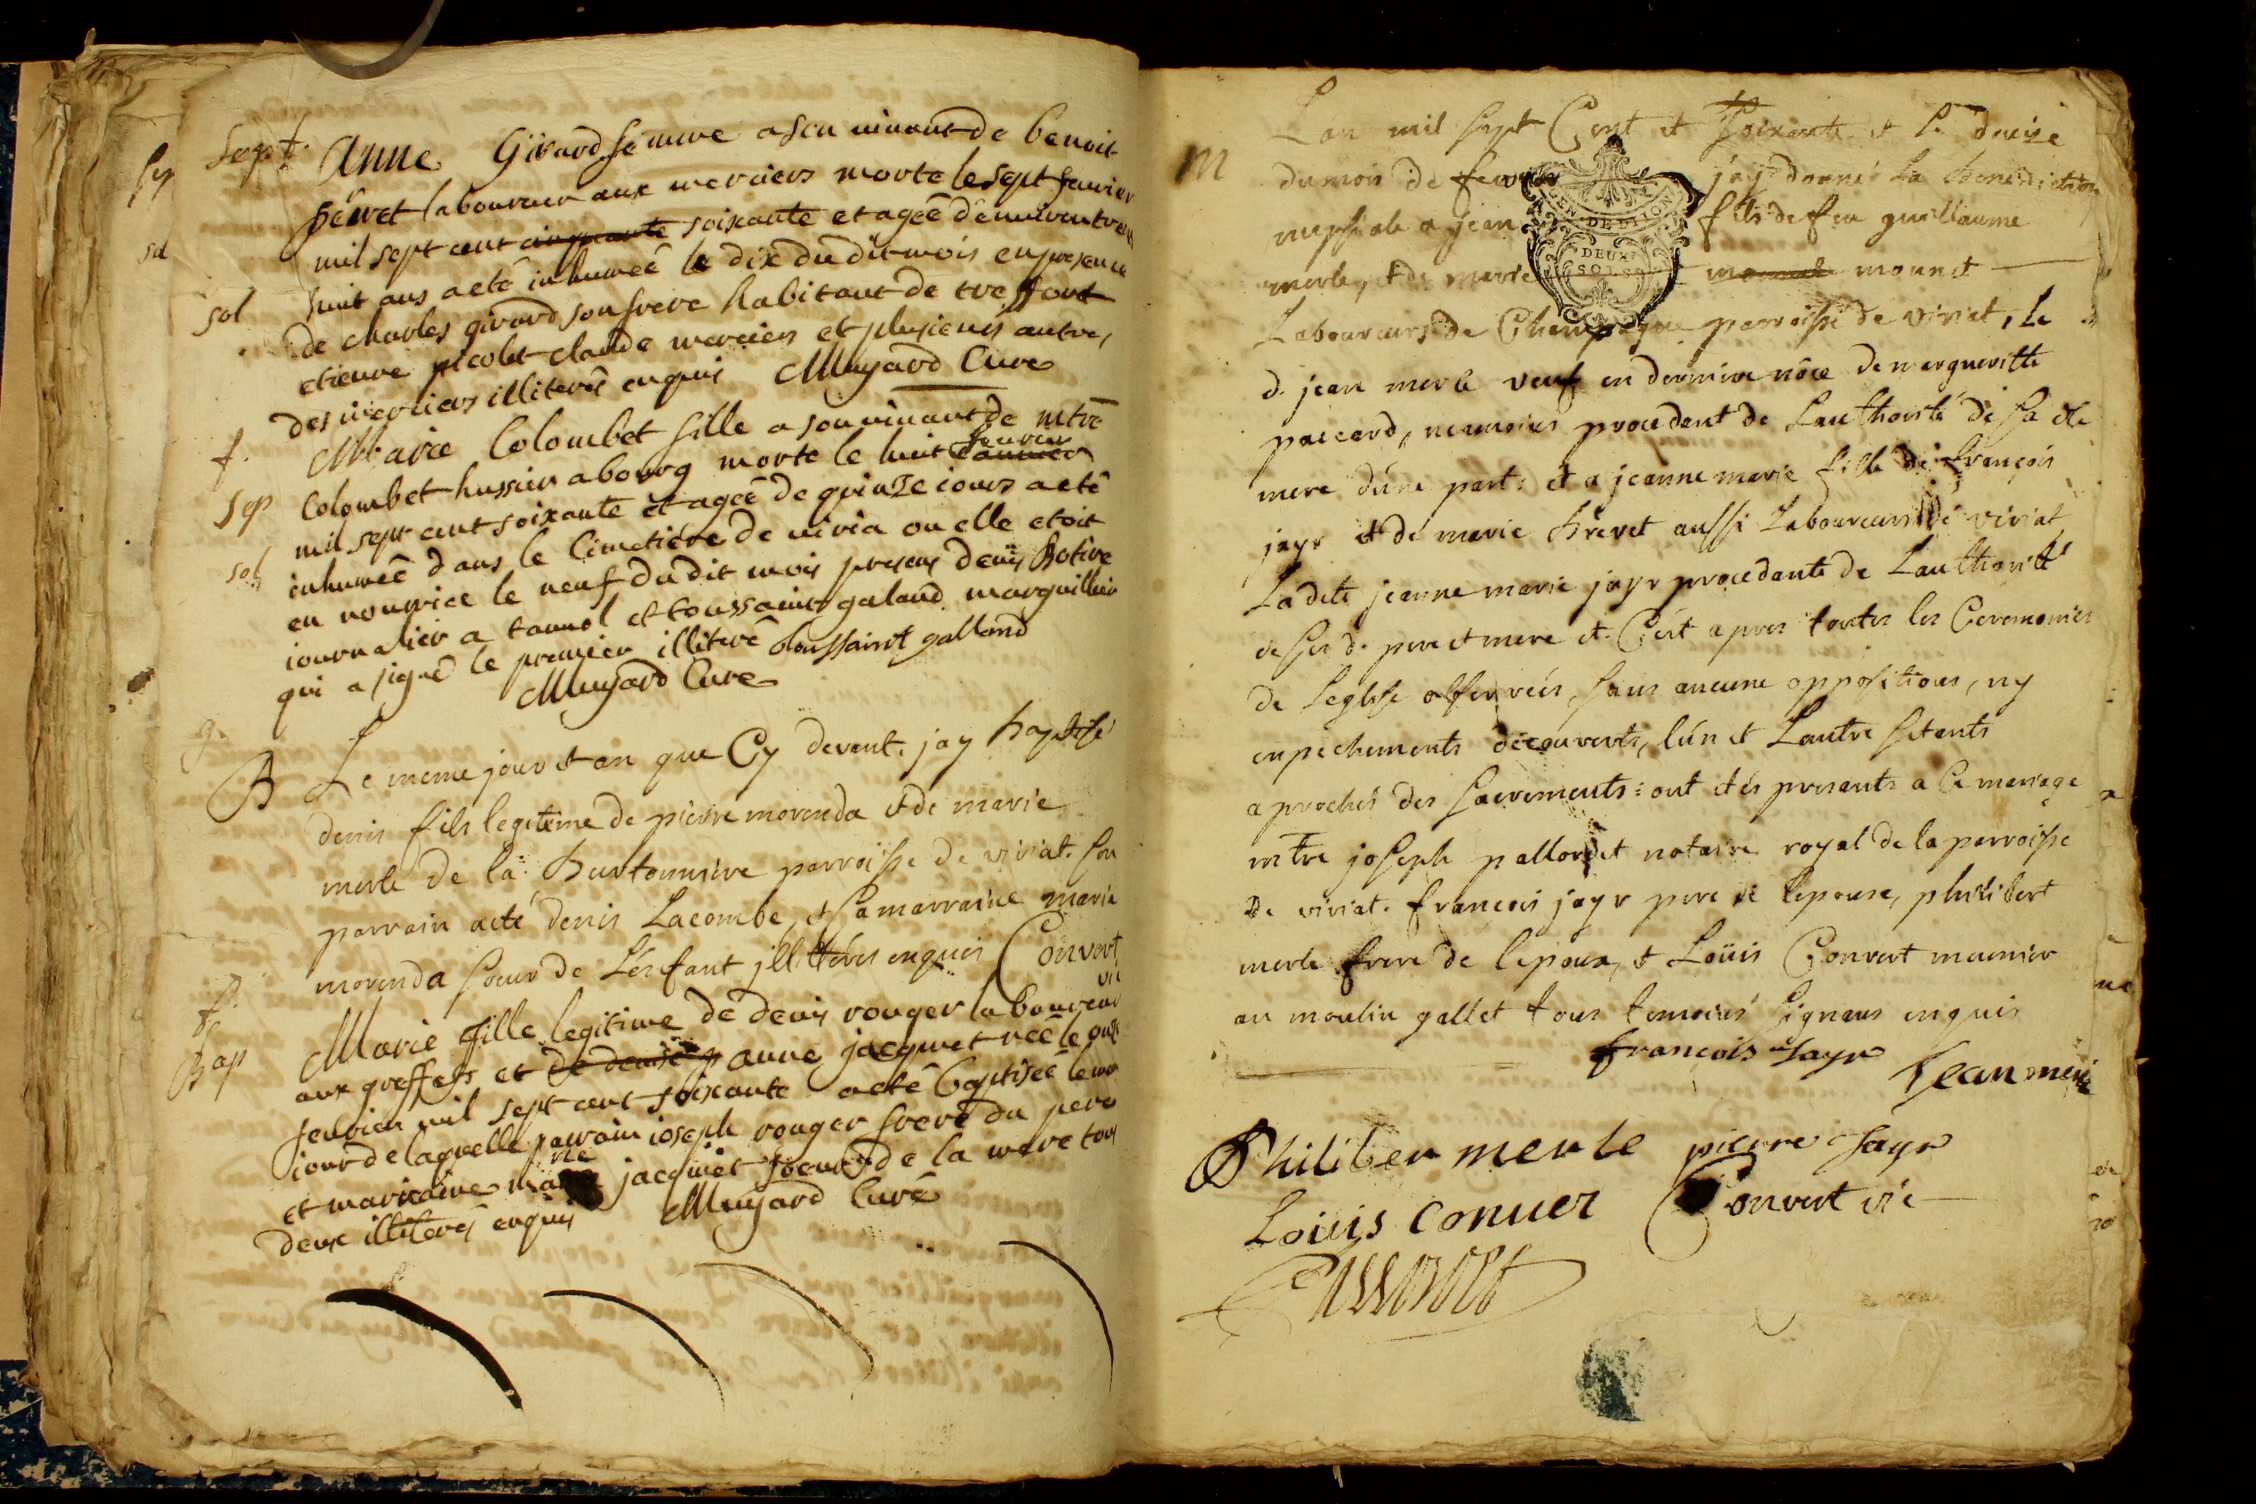 Sept. Anne Girard femme a son vivant de benoit
Sep hêvret laboureur aux merciers morte le sept fevrier
mil sept cent cinquante soixante et ageê d'environ trente
huit ans a etê inhumeê le dix du dit mois en presence
sol de charles girard son frere habitant de treffort
etienne picolet claude merciers et plusieurs autre,
des merciers illiterês enquis Mugard Cure
f. Marie Colombet fille a son vivant de mtre
Sep Colombet hussier a bourg morte le huit janvier fevrier
mil sept cent soixante et ageê de quinze iours a etê
sol inhumeê dans le Cimetiére de viria ou elle etoit
en nourrice le neuf du dit mois presens denis
iournalier a tannol et toussaint galand marguillier
qui a signê le premier illiterê toussaint galland
Mugard Cure
g.
B Le meme jour et an que Cy devant. jay baptisé
denis fils legitime de pierre morenda et de marie
merle de la parroisse de viriat. son
parrain a eté denis Lacombe, et sa marraine marie
morenda soeur de L'énfant jllitteres enquis Convert
vic
f.
Bap Marie fille legitime de denis rouger laboureur
aux greffets et de denise anne jacquet neê le onze
fevrier mil sept cent soixante a etê Baptiseê le
jour de laquelle parrain ioseph rouger frere du pere
et marraine marie jacquet soeur de la mere tous
deux illiterês enquis Mugard Curê
Lan mil sept Cent et soixante et le douze
M du mois de fevrier jay donné La benediction
nuptiale a jean fils de feu guillaume
merle, et de marie mounet
EN. DE DIJON
DEUX
SOLS
Laboureurs de Champagne parroisse de viriat, Le
d. jean merle veuf en derniere nôce de margueritte
paccard, neamoins procedant de Lauthorité de sa dte
mere d'úne part: et a jeanne marie fille de françois
jayr et de marie brevet aussi Laboureurs de viriat
Ladite jeanne marie jayr procedante de Lauthorité
de ses d. pere et mere et. C'est apres toutes les Ceremonies
de leglise observées, sans aucune oppositions, ny
enpechements découverts, lún et Lautre s'etants
aprochés des sacrements: ont etés presants a Ce mariage
mtre joseph pallordet notaire royal de la parroisse
de viriat. francois jayr pere de lepouse, philibert
merle frere de lepoux, et Loüis Convert meunier
au moulin gallet tous temoins signans enquis
francois Jayr Jean merle
Philiber merle pierre Jayr
Louis Conver Convert vic